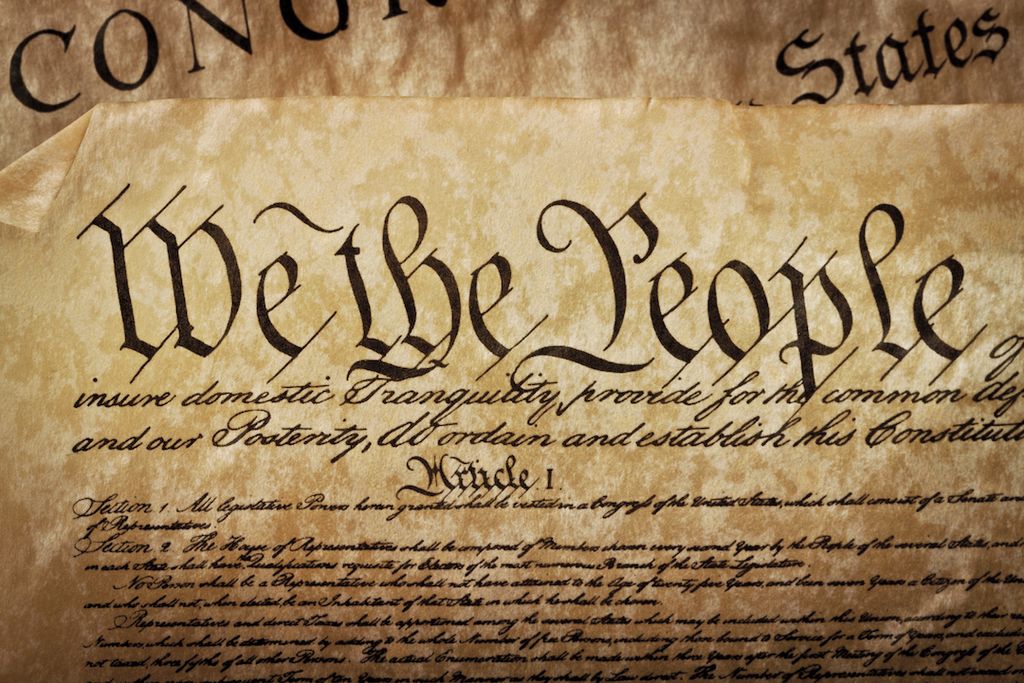 CONGR
States
We the People of
insure domestic Tranquility, provide for the common def
and our Posterity, do ordain and establish this Constituti
Article I.
Section 1. All legislative Powers herein granted shall be vested in a Congress of the United States, which shall consist of a Senate and
of Representatives.
Section 2. The House of Representatives shall be composed of Members chosen every second Year by the People of the several States, and
in each State shall have the Qualifications requisite for Electors of the most numerous Branch of the State Legislature.
No Person shall be a Representative who shall not have attained to the Age of twenty five Years, and been seven Years a Citizen of the Uni
and who shall not, when elected, be an Inhabitant of that State in which he shall be chosen.
Representatives and direct Taxes shall be apportioned among the several States which may be included within this Union, according to their res
Numbers, which shall be determined by adding to the whole Number of free Persons, including those bound to Service for a Term of Years, and excludi
not taxed, three fifths of all other Persons. The actual Enumeration shall be made within three Years after the first Meeting of the Congress of the U
subsequent Term of ten Years, in such Manner as they shall by Law direct. The Number of Representatives shall not exceed